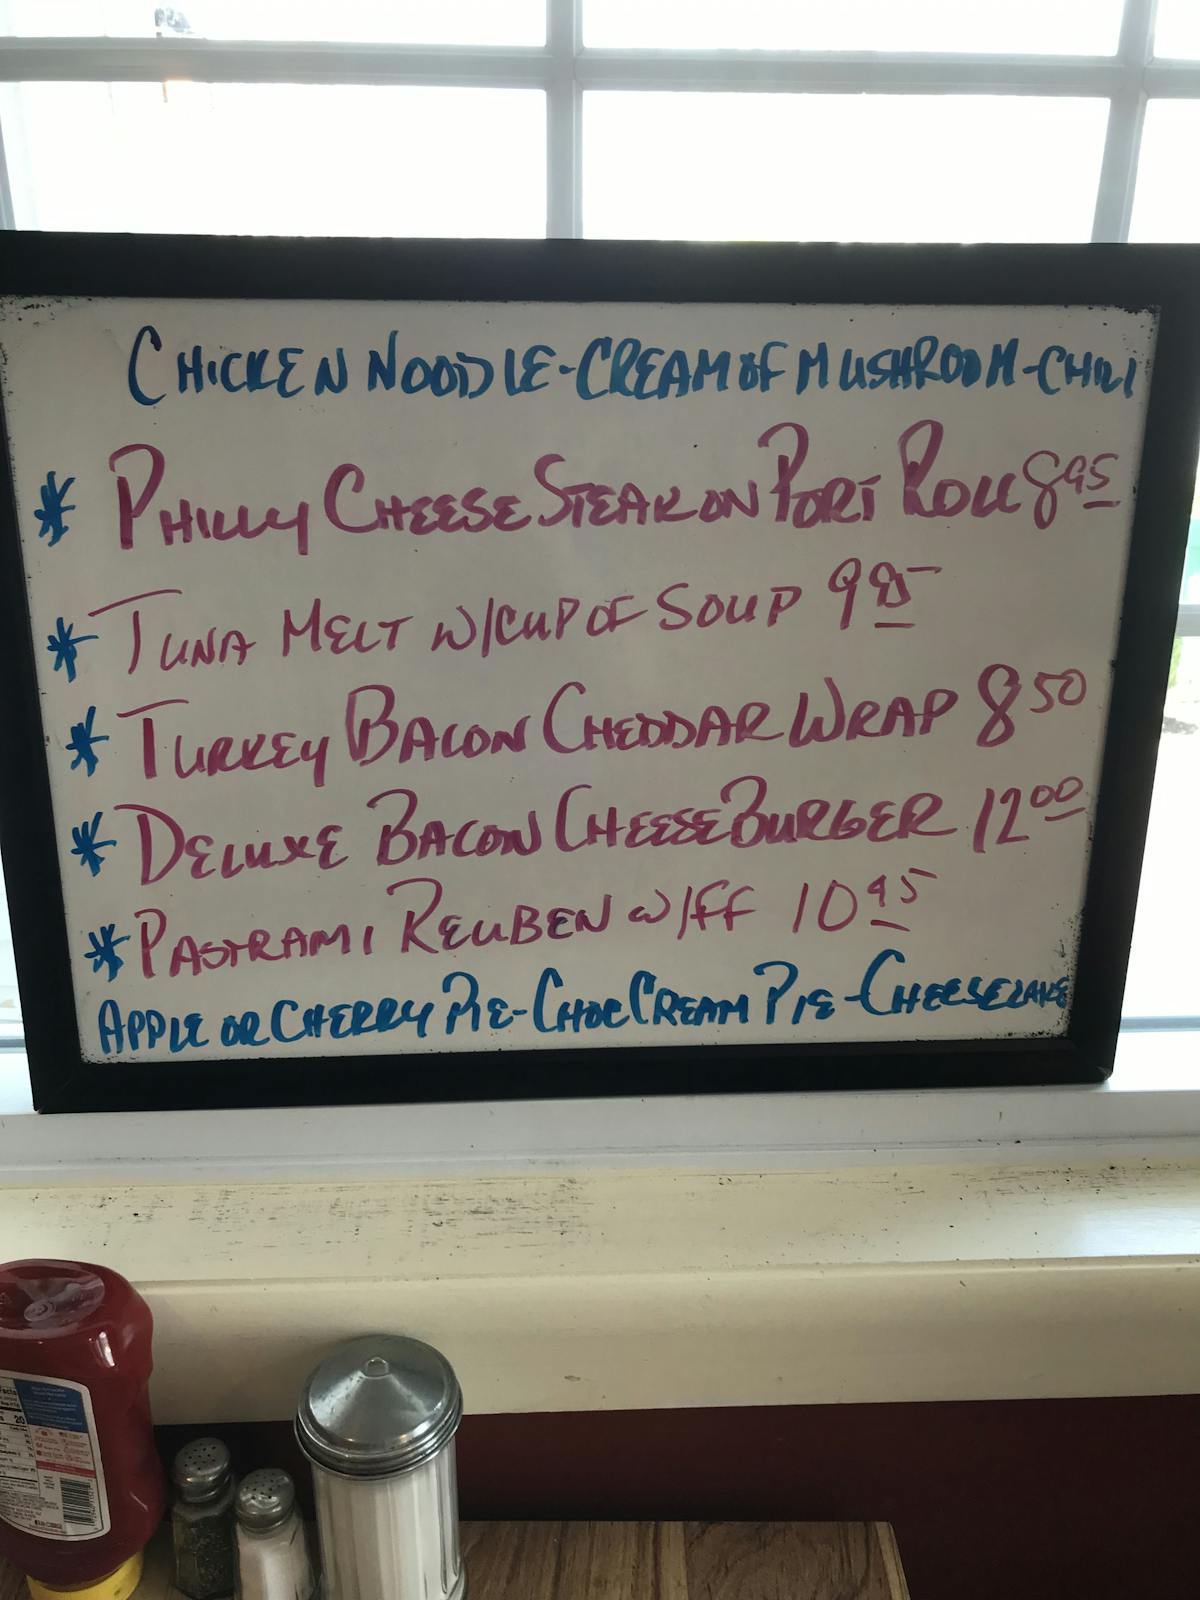 CHICKEN NOODLE-CREAM OF MUSHROOM-CHILI
* PHILLY CHEESE STEAK ON PORT ROLL 8 95
* TUNA MELT W/CUP OF SOUP 9 85
* TURKEY BACON CHEDDAR WRAP 8 50
* DELUXE BACON CHEESE BURGER 12 00
* PASTRAMI REUBEN W/FF 10 95
APPLE OR CHERRY PIE-CHOC CREAM PIE-CHEESECAKE